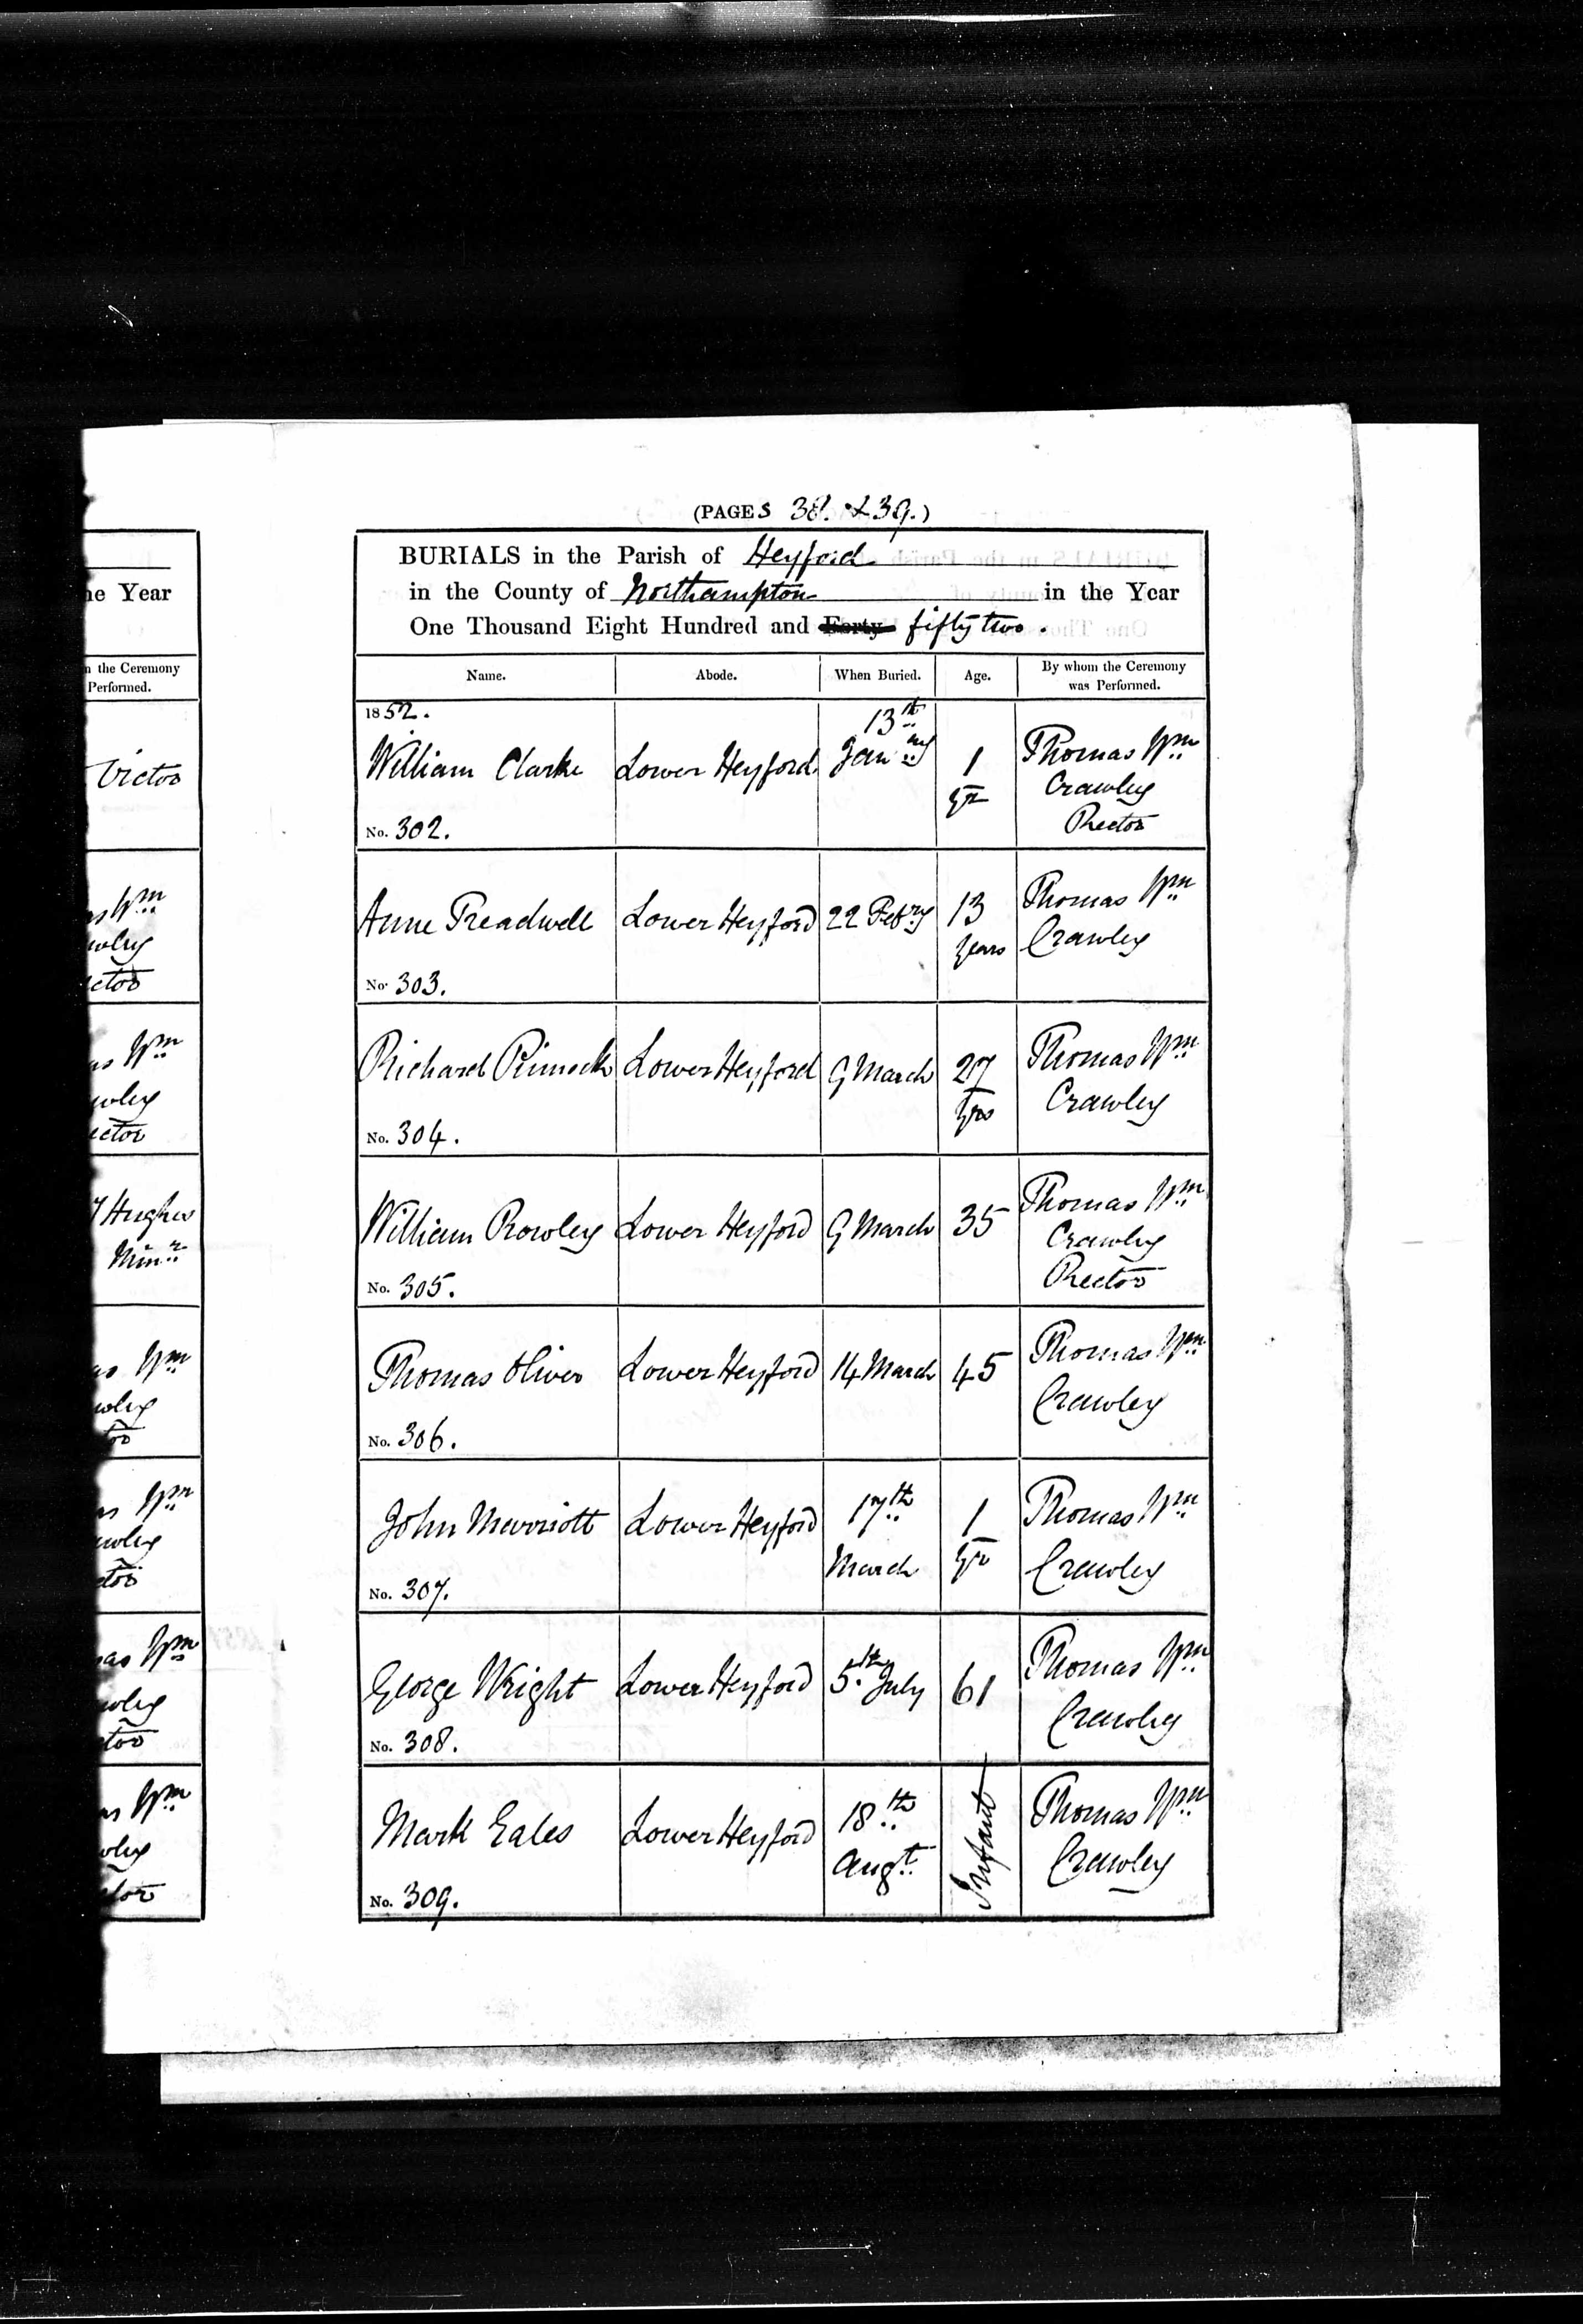 he Year
n the Ceremony
Performed.
wley
ector
Hughes
Minr
(PAGES 38. & 39.)
BURIALS in the Parish of Heyford
in the County of Northampton in the Year
One Thousand Eight Hundred and Forty fifty two.
Name. Abode. When Buried. Age. By whom the Ceremony was Performed.
1852.
William Clarke Lower Heyford. 13th Janry 1 yr Thomas Wm Crawley Rector
No. 302.
Anne Treadwell Lower Heyford 22 Febry 13 years Thomas Wm Crawley
No. 303.
Richard Lower Heyford 9 March 27 yrs Thomas Wm Crawley
No. 304.
William Rowley Lower Heyford 9 March 35 Thomas Wm Crawley Rector
No. 305.
Thomas Oliver Lower Heyford 14 March 45 Thomas Wm Crawley
No. 306.
John Marriott Lower Heyford 17th March 1 yr Thomas Wm Crawley
No. 307.
George Wright Lower Heyford 5th July 61 Thomas Wm Crawley
No. 308.
Mark Eales Lower Heyford 18th Augt. Infant Thomas Wm Crawley
No. 309.